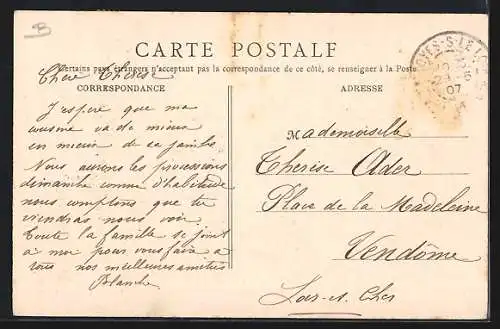 B
CARTE POSTALE
Certains pays étrangers n'acceptant pas la correspondance de ce côté, se renseigner à la Poste
Chère Thérèse
CORRESPONDANCE
ADRESSE
J'espère que ma
cousine va de mieux
en mieux de sa jambe.
Nous aurons les processions
dimanche comme d'habitude
nous comptons que tu
viendras nous voir
Toute la famille se joint
à moi pour vous faire à
tous nos meilleures amitiés
Blanche
Mademoiselle
Thérèse Ader
Place de la Madeleine
Vendôme
Loir-et-Cher
07